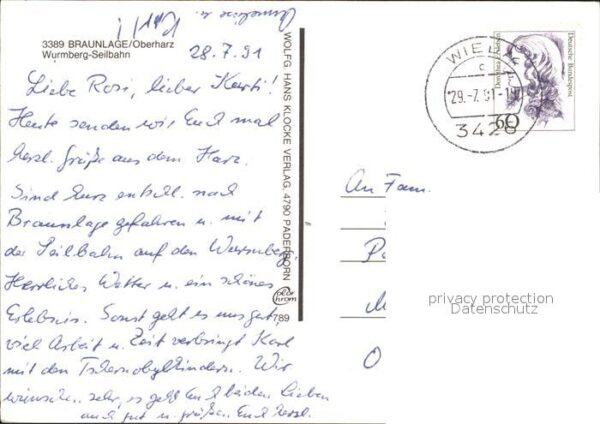 3389 BRAUNLAGE/Oberharz
Wurmberg-Seilbahn
28.7.91
Liebe Rosi, lieber Karti!
Heute senden wir Euch mal
herzl. Grüße aus dem Harz.
Sind kurz entschl. nach
Braunlage gefahren u. mit
der Seilbahn auf den Wurmberg.
Herrliches Wetter u. ein schönes
Erlebnis. Sonst geht es uns gut,
viel Arbeit u. Zeit verbringt Karl
mit den Tschernobylkindern. Wir
wünschen sehr, es geht Euch beiden Lieben
auch gut u. grüßen Euch herzl.
Anneliese u.
Karl
WOLFG. HANS KLOCKE VERLAG, 4790 PADERBORN
color
chrom
789
WIEDA
29.-7.91-
3426
Deutsche Bundespost
Dorothea
60
An Fam.
P
M
O
privacy protection
Datenschutz